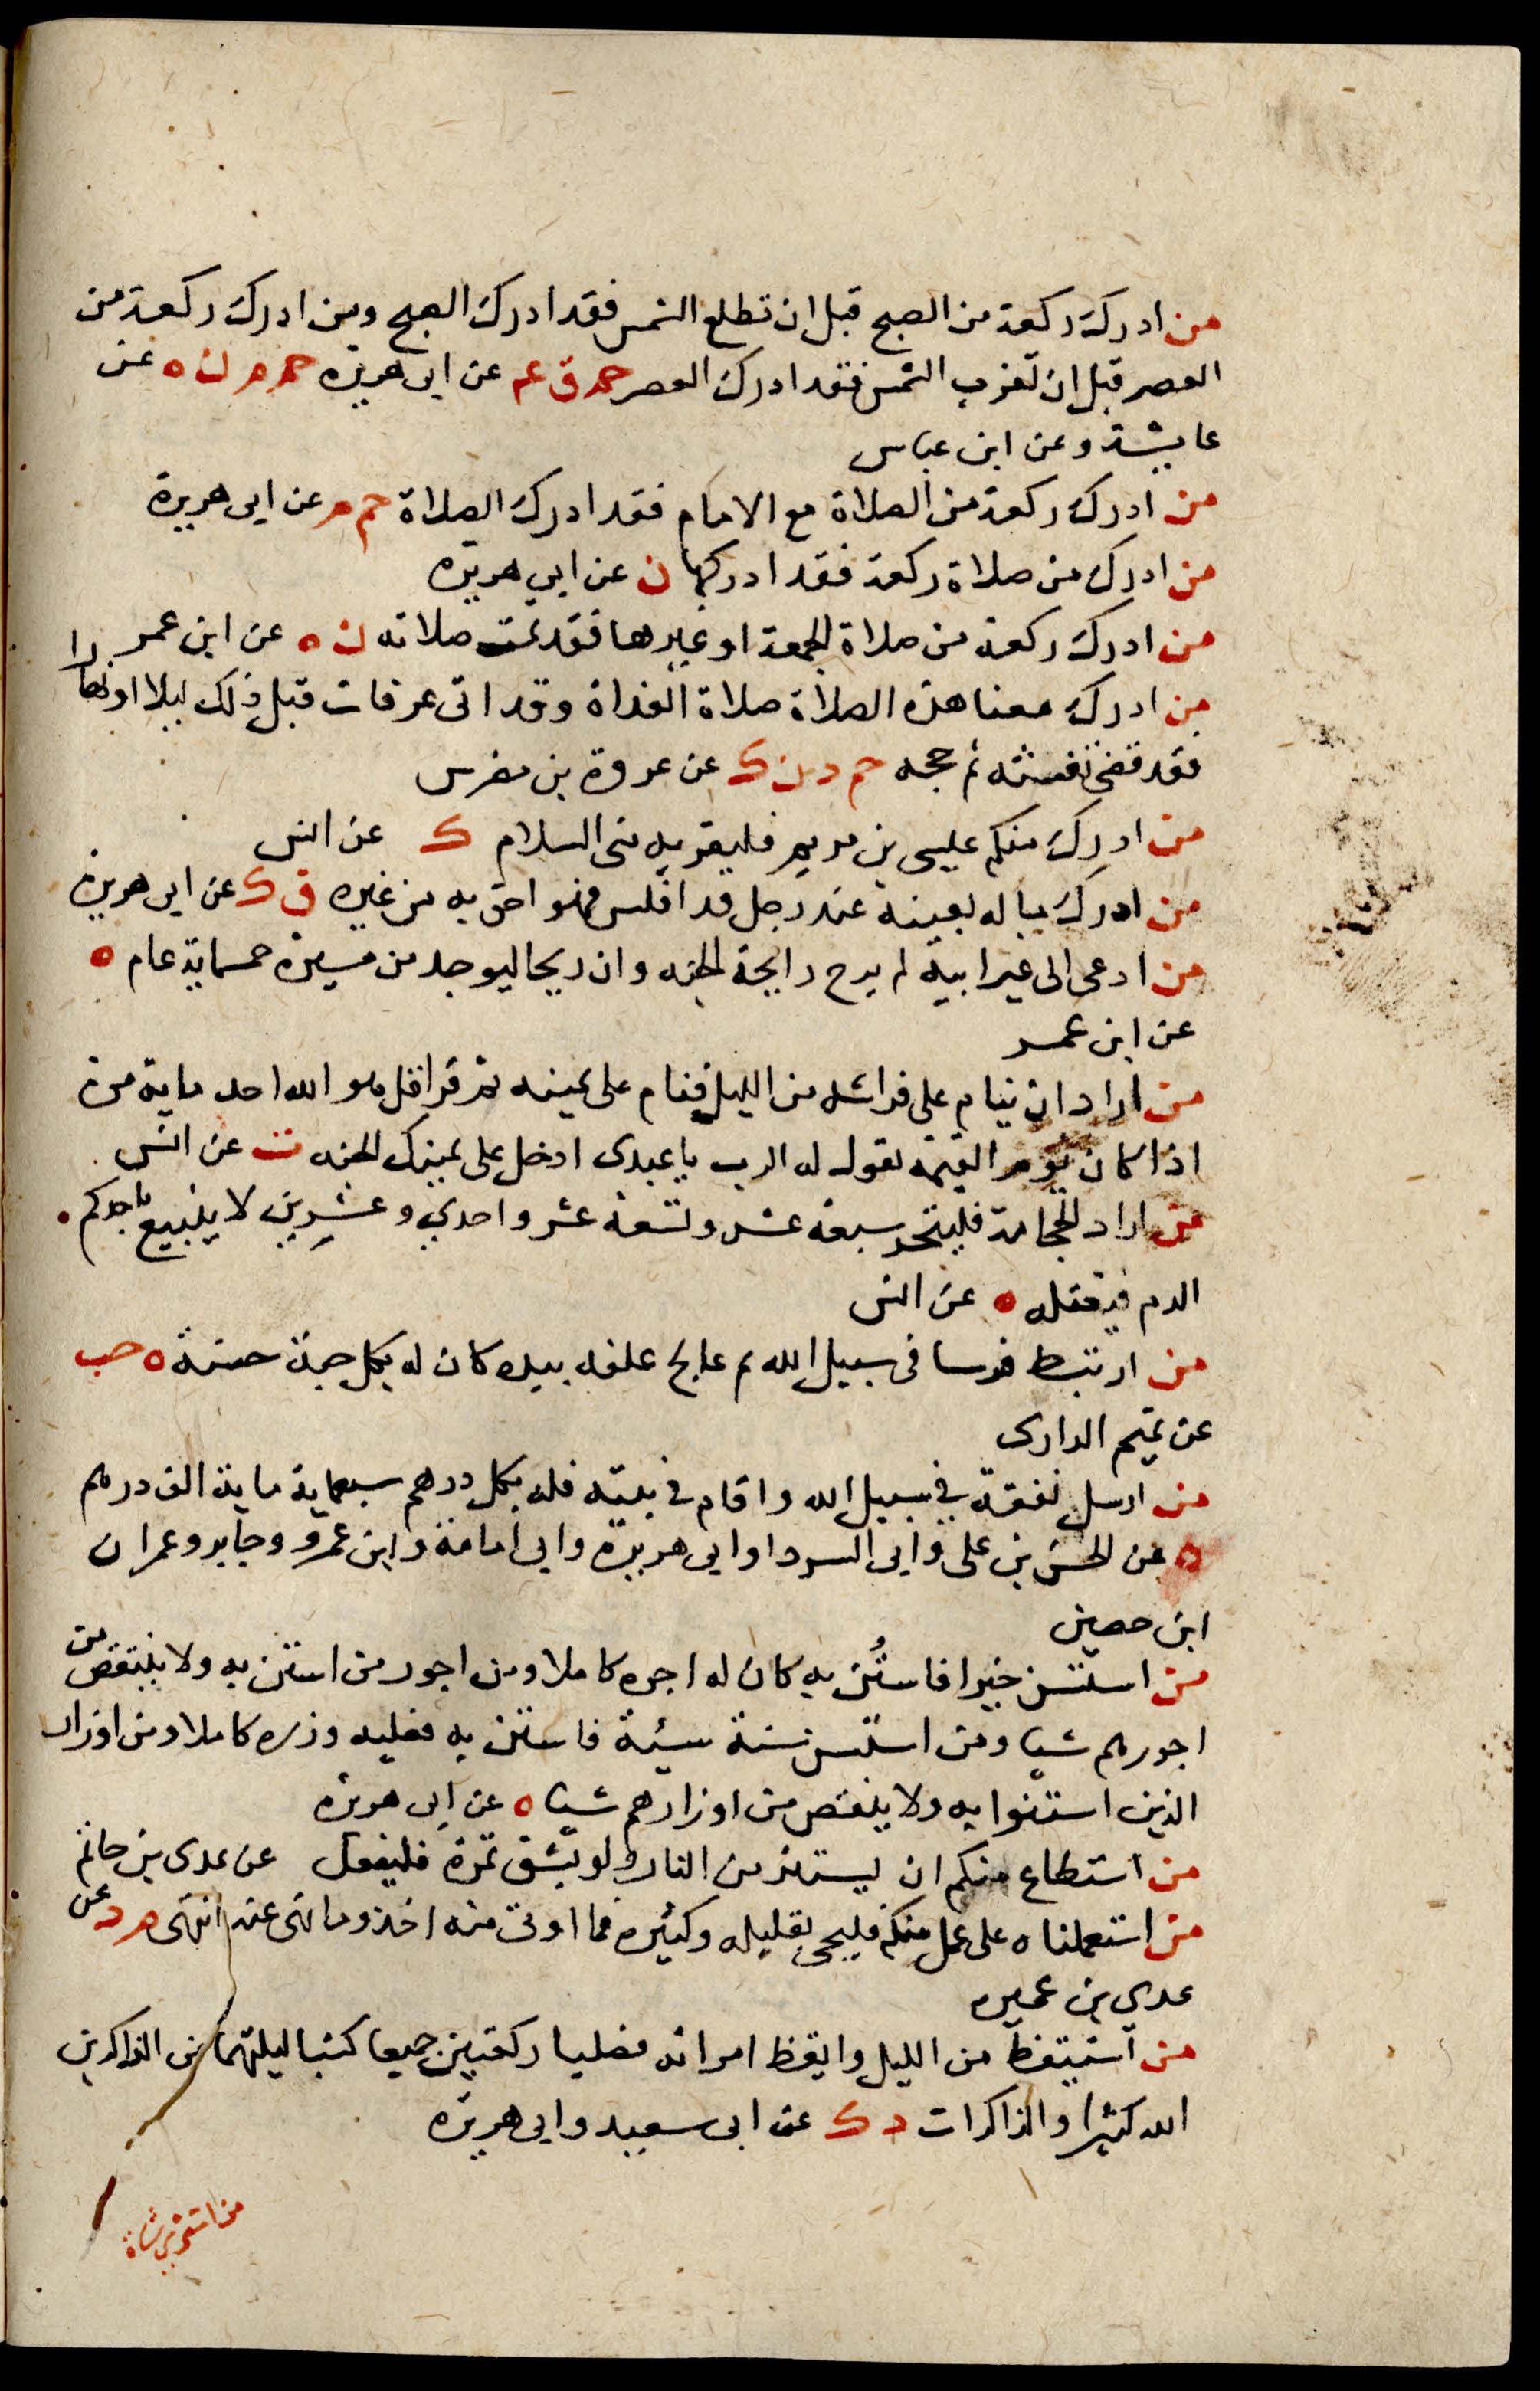 من ادرك ركعة من الصبح قبل ان تطلع الشمس فقد ادرك الصبح ومن ادرك ركعة من
العصر قبل ان تغرب الشمس فقد ادرك العصر حم ق عم عن ابى هريره حم م ن ه عن
عايشة وعن ابن عباس
من ادرك ركعة من الصلاة مع الامام فقد ادرك الصلاة حم م عن ابى هريرة
من ادرك من صلاة ركعة فقد ادركها ن عن ابي هريره
من ادرك ركعة من صلاة الجمعة او غيرها فقد تمت صلاته ن ه عن ابن عمر
من ادرك معنا هذه الصلاة صلاة الغداة وقد اتى عرفات قبل ذلك ليلا او نهارا
فقد قضى تفثه ثم حجه حم د ن ك عن عروة بن مضرس
من ادرك منكم عيسى بن مريم فليقريه منى السلام ك عن انس
من ادرك ماله بعينه عند رجل قد افلس فهو احق به من غيره ق ك عن ابى هريرة
من ادعى الى غير ابيه لم يرح رايحة الجنه وان ريحا ليوجد من مسيرة خمسماية عام ه
عن ابن عمر
من اراد ان ينام على فراشه من الليل فنام على يمينه ثم قرا قل هو الله احد ماية مرة
اذا كان يوم القيمة يقول له الرب يا عبدى ادخل على يمينك الجنه ت عن انس
من اراد الحجامة فليتحر سبعة عشر وتسعة عشر واحدي وعشرين لا يتبيغ باحدكم
الدم فيقتله ه عن انس
من ارتبط فرسا فى سبيل الله ثم عالج علفه بيده كان له بكل حبة حسنة ه حب
عن تميم الدارى
من ارسل نفقة في سبيل الله واقام في بيته فله بكل درهم سبعماية ماية الف درهم
ه عن الحسن بن على وابى الدردا وابى هريره وابى امامة وابن عمرو وجابر وعمران
ابن حصين
من استسن خيرا فاستُن به كان له اجره كاملا ومن اجور من استن به ولا ينتقص من
اجورهم شيا ومن استسن سنة سيئة فاستن به فعليه وزره كاملا ومن اوزار
الذين استنوا به ولا ينتقص من اوزارهم شيا ه عن ابى هريره
من استطاع منكم ان يستتر من النار ولو بشق تمرة فليفعل عن عدى بن حاتم
من استعملناه على عمل منكم فليجى بقليله وكثيره فما اوتى منه اخذ وما نهى عنه انتهى م د عن
عدي بن عميره
من استيقظ من الليل وايقظ امراته فصليا ركعتين جميعا كتبا ليلتهما من الذاكرين
الله كثيرا والذاكرات د ك عن ابى سعيد وابى هريره